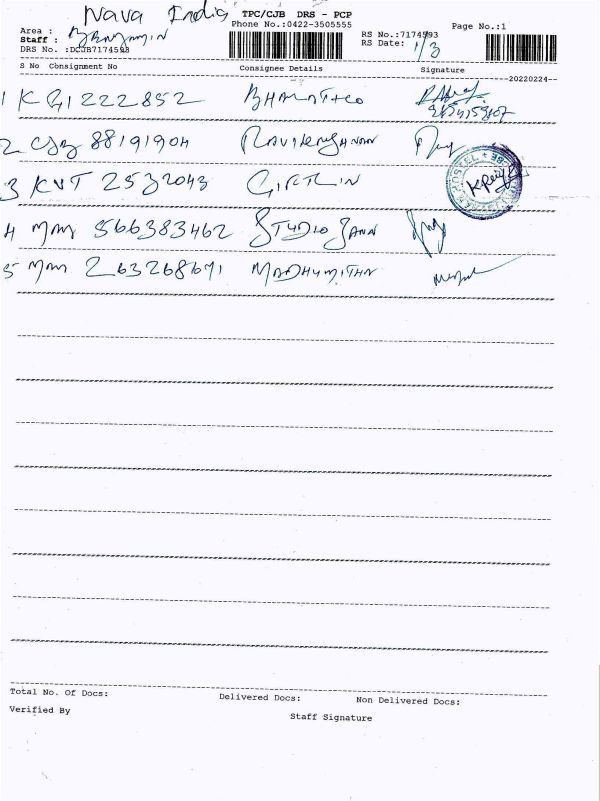 Nava India
TPC/CJB DRS - PCP
Phone No.:0422-3505555
Page No.:1
Area :
Staff : BENJAMIN
DRS No. :DCJB7174593
RS No.:7174593
RS Date: 1/3
S No Consignment No Consignee Details Signature
--20220224--
1 KGI 222852
2 CJB 88191904
3 KVT 2532043
4 MM 566383462 STUDIO
5 MM 263268671 MADHUMITHA
Total No. Of Docs: Delivered Docs: Non Delivered Docs:
Verified By Staff Signature